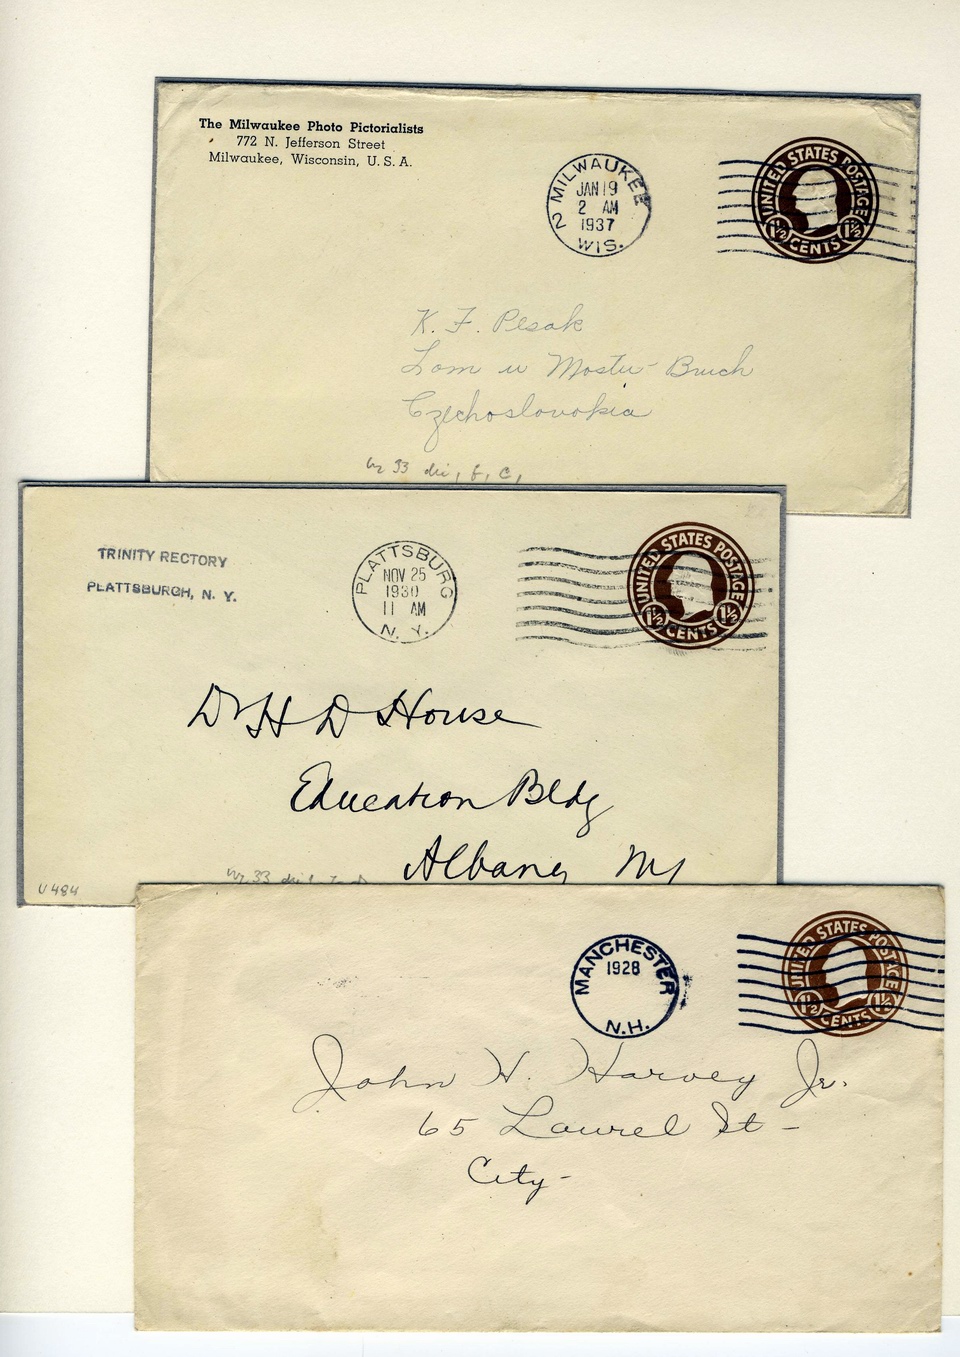 The Milwaukee Photo Pictorialists
772 N. Jefferson Street
Milwaukee, Wisconsin, U. S. A.
MILWAUKEE
JAN 19
2 AM
1937
2
WIS.
UNITED STATES POSTAGE
1½ CENTS 1½
K. F. Pesak
Lom u Mostu - Bruch
Czechoslovokia
TRINITY RECTORY
PLATTSBURGH, N. Y.
PLATTSBURG
NOV 25
1930
11 AM
N. Y.
UNITED STATES POSTAGE
1½ CENTS 1½
Dr H D House
Education Bldg
Albany NY
U484
MANCHESTER
1928
N.H.
UNITED STATES POSTAGE
1½ CENTS 1½
John W. Harvey Jr.
65 Laurel St -
City -